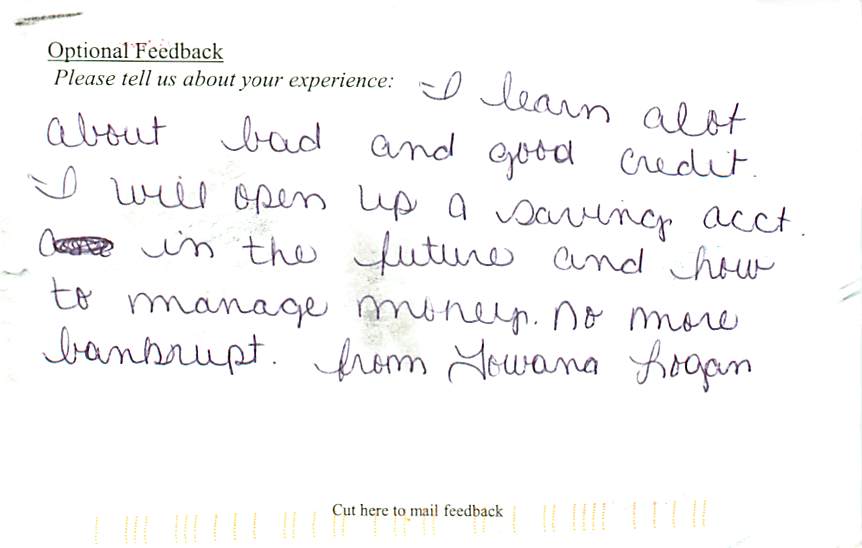 Optional Feedback
Please tell us about your experience: I learn alot
about bad and good credit.
I will open up a saving acct.
in the future and how
to manage money. no more
bankrupt. from Yowana Logan
Cut here to mail feedback